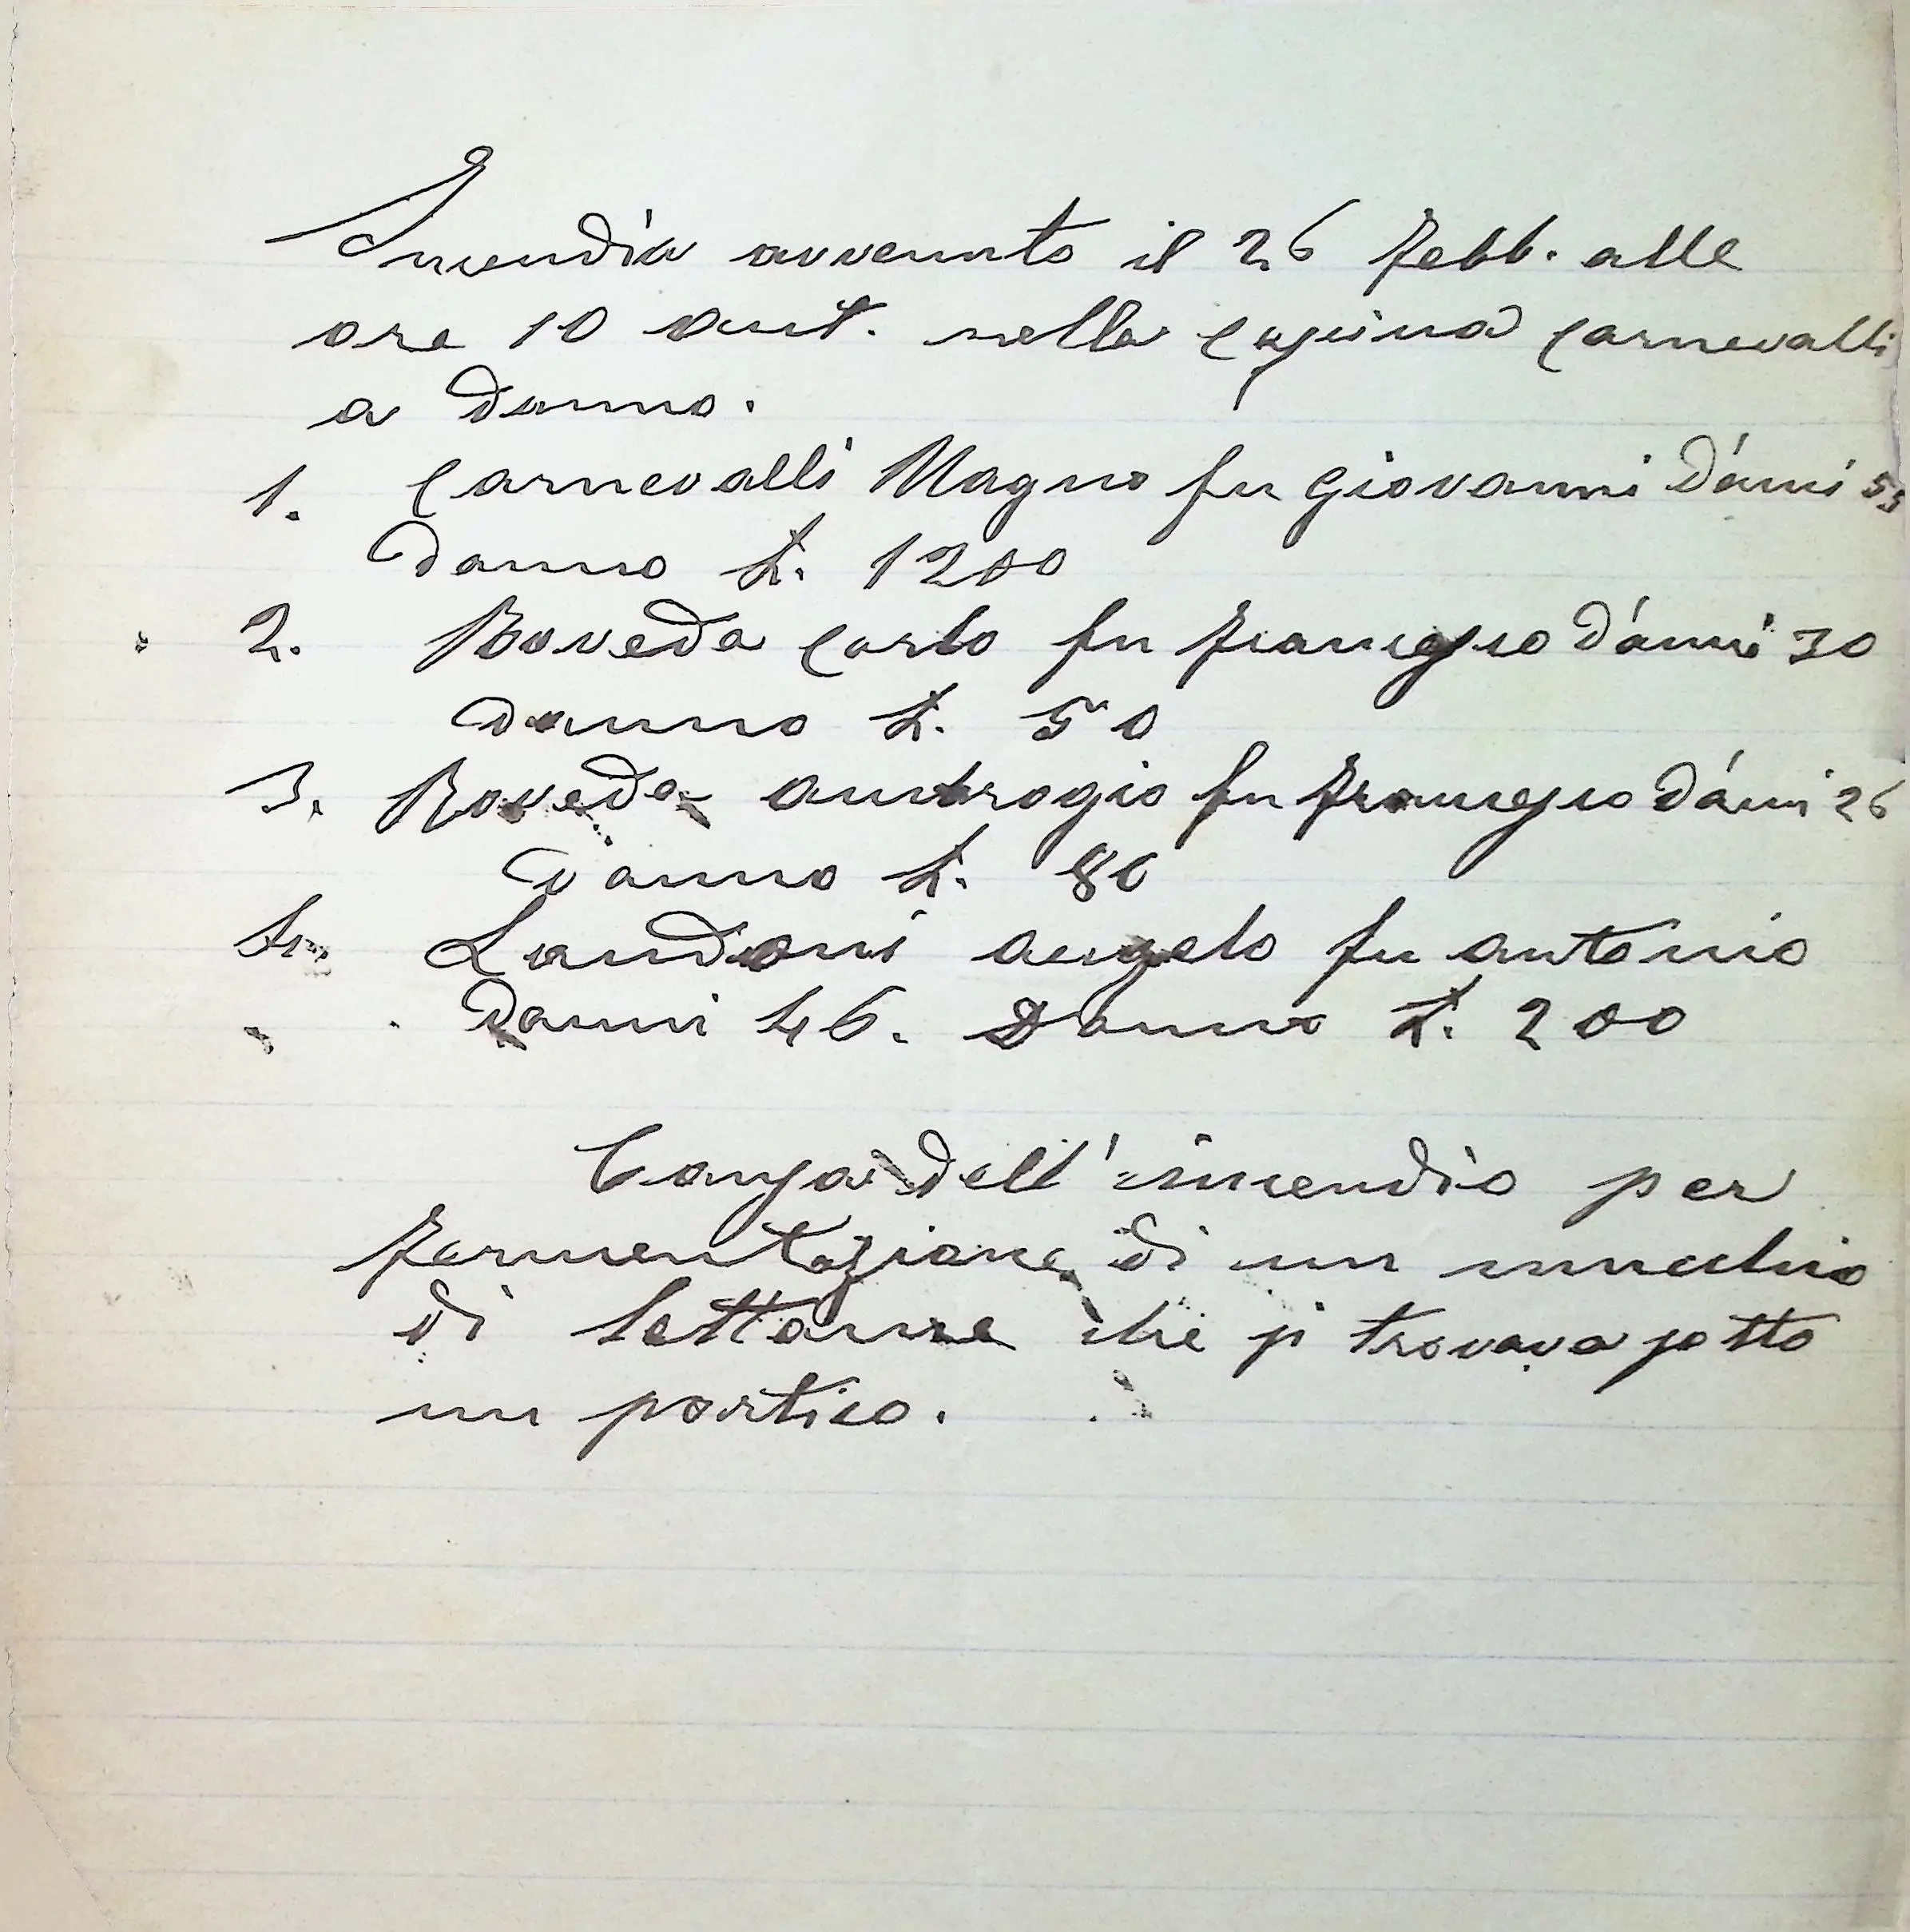 Incendio avvenuto il 26 febb. alle
ore 10 ant. nella Casina Carnevalli
a danno.
1. Carnevalli Magno fu Giovanni d'anni 55
Danno L. 1200
2. Roveda Carlo fu Francesco d'anni 30
Danno L. 50
3. Roveda Ambrogio fu Francesco d'anni 26
Danno L. 80
4. Landoni Angelo fu Antonio
d'anni 46. Danno L. 200
Causa dell'incendio per
fermentazione di un mucchio
di lettame che si trovava sotto
un portico.